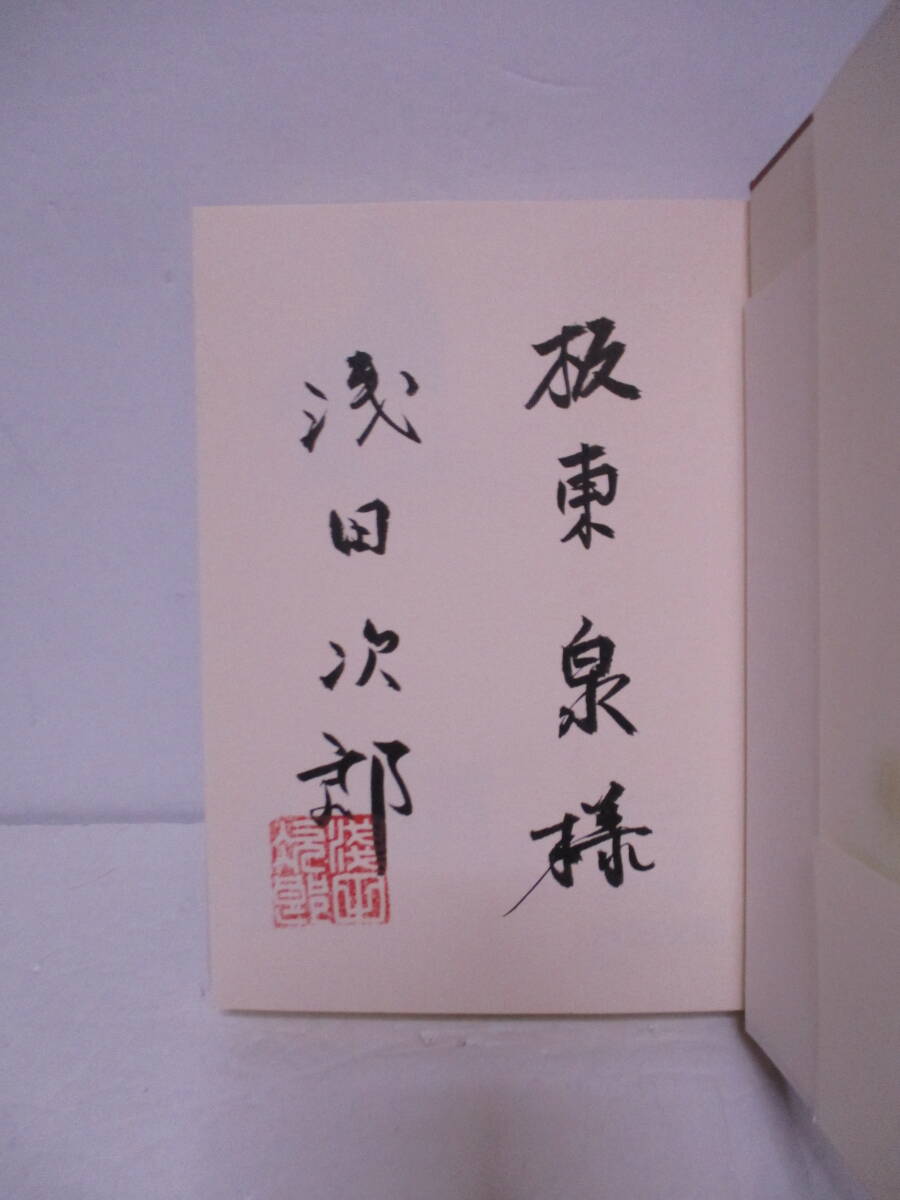 板東泉様
浅田次郎